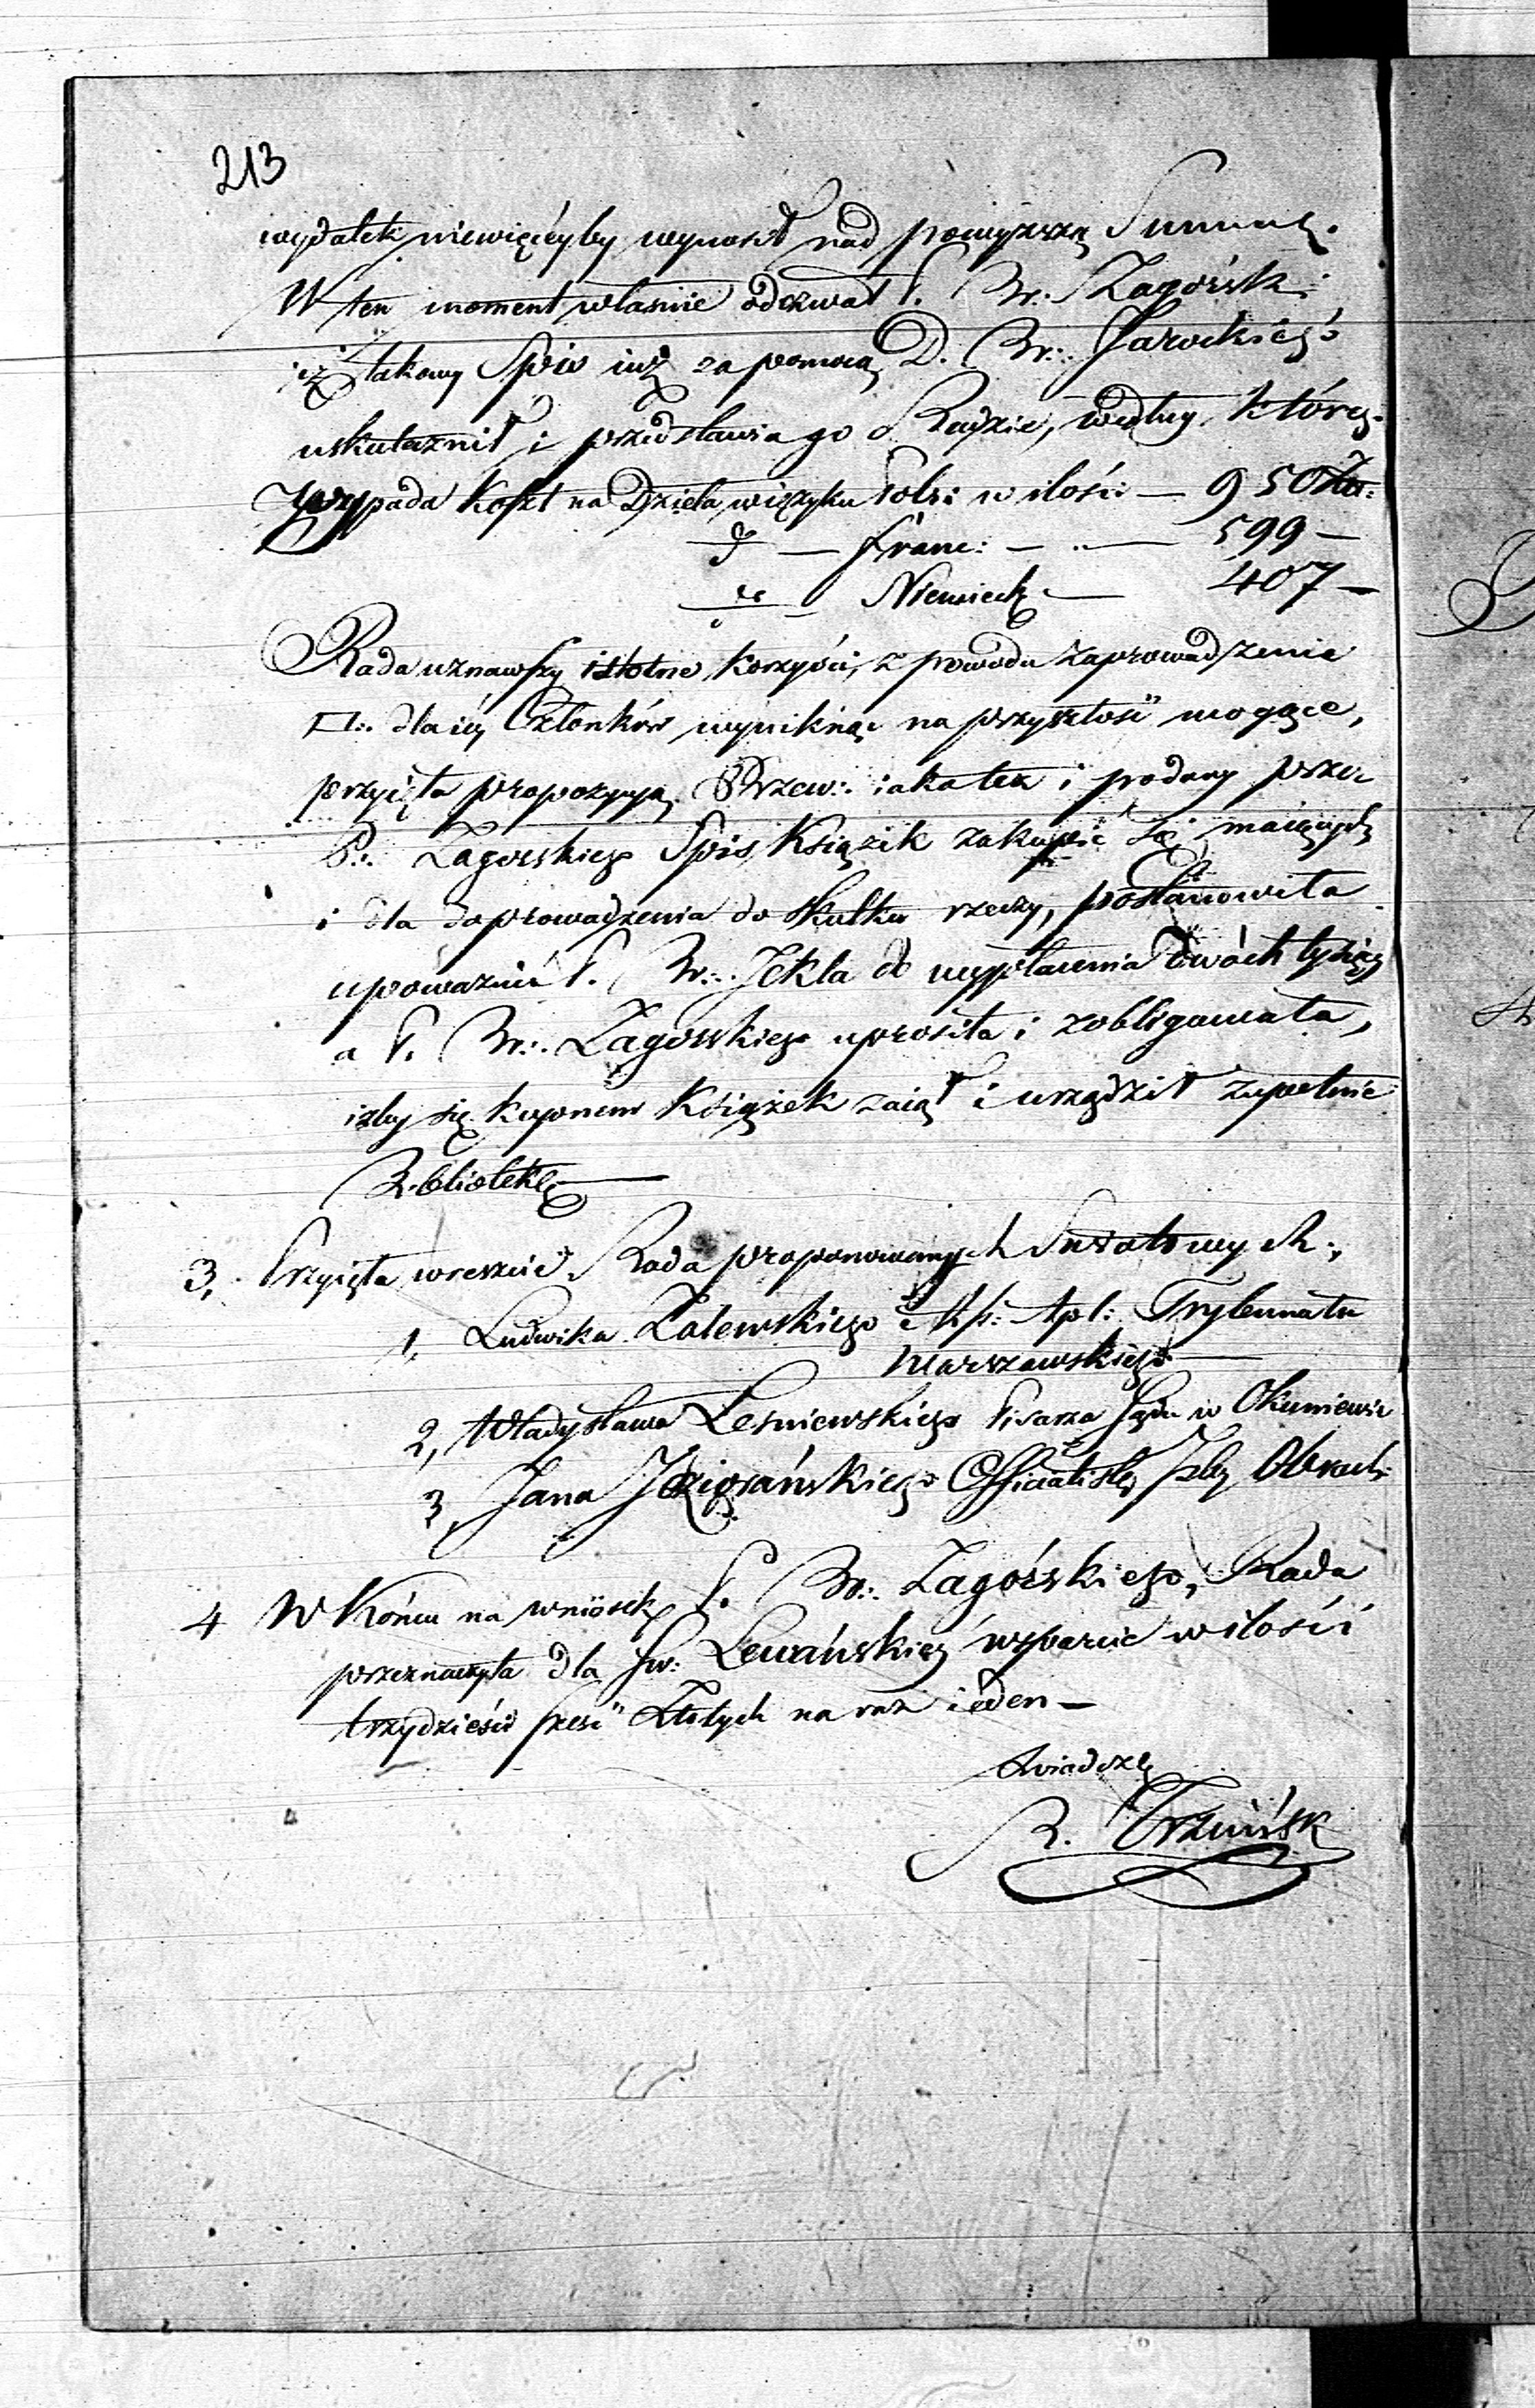 213
wydatek niewięcéyby wynosił nad powyższą Summę.
W ten moment właśnie odezwał P. Br∴ Zagórski
iż takowy Spis iuż za pomocą D. Br∴ Jarockiego
uskutecznił i przedstawia go Radzie, według którego
wypada koszt na Dzieła w ięzyku Pols: w ilości — 950 Zło:
d° — franc: — „ — 599 —
d° — Niemieck — 407 —
Rada uznawszy istotne korzyści, z powodu zaprowadzenia
□∴ dla iéy Członków wyniknąć na przyszłość mogące,
przyięła propozycyą Przew∴ iako też i podany przez
P∴ Zagorskiego Spis Książek zakupić się maiących
i dla doprowadzenia do skutku rzeczy, postanowiła
upoważnić P. Br∴ Jekla do wypłacenia dwóch tysięcy
a P. Br∴ Zagorskiego uprosiła i zobligowała,
iżby się kupnem Książek zaiął i urządził zupełnie
Bibliotekę —
3, Przyięła wreszcie Rada proponowanych Swiatowych:,
1, Ludwika Zalewskiego Ass: Apl: Trybunału
Warszawskiego —
2, Władysława Lesniewskiego Pisarza Sądu w Okuniewie
3, Jana Officialistę Izby Obrach:
4 W Końcu na wniosek P. Br∴ Zagórskiego, Rada
przeznaczyła dla Sw: Lewańskiéy wsparcie w ilości
trzydzieści sześć Złotych na raz ieden —
Swiadczę
R. Trzciński